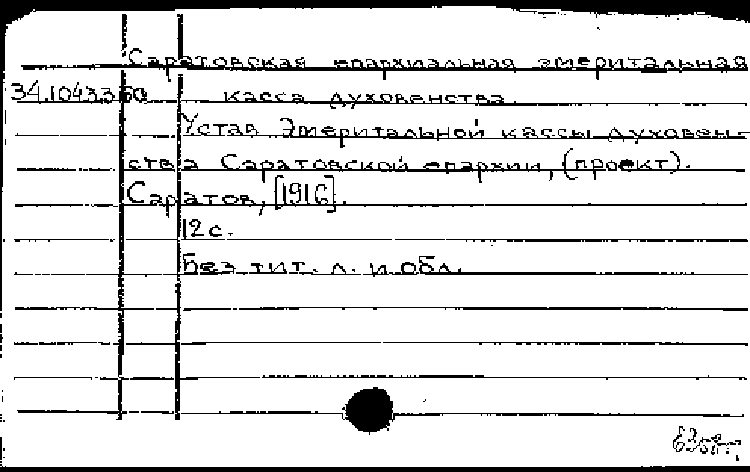 Саратовская епархиальная эмеритальная
касса духовенства.
34.10433
Устав Эмеритальной кассы духовен-
ства Саратовской епархии, (проект).
Саратов, [1916].
12 с.
Без тит. л. и обл.